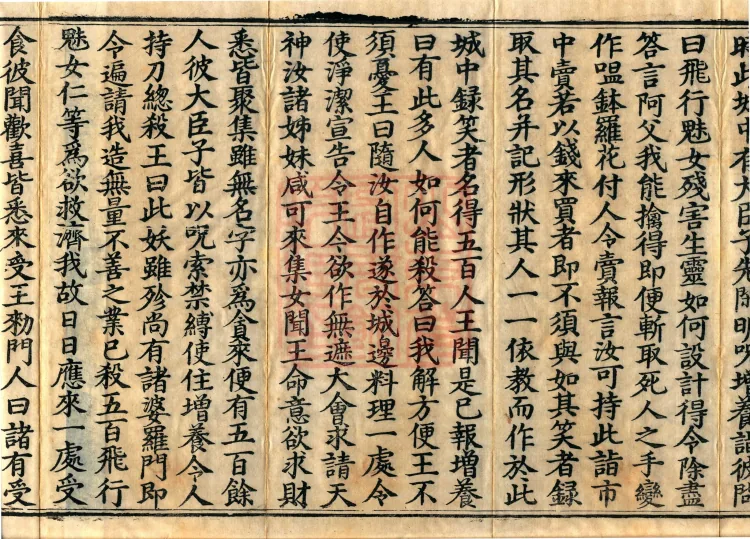 此城中有大臣子先閑明呪增養詣彼問
曰飛行魅女殘害生靈如何設計得令除盡
答言阿父我能擒得即便斬取死人之手變
作嗢鉢羅花付人令賣報言汝可持此詣市
中賣若以錢來買者即不須與如其笑者録
取其名并記形狀其人一一依教而作於此
城中録笑者名得五百人王聞是已報增養
曰有此多人如何能殺答曰我解方便王不
須憂王曰隨汝自作遂於城邊料理一處令
使淨潔宣告令王今欲作無遮大會求請天
神汝諸姊妹咸可來集女聞王命意欲求財
悉皆聚集雖無名字亦爲貪來便有五百餘
人彼大臣子皆以呪索禁縛使住增養令人
持刀總殺王曰此妖雖殄尚有諸婆羅門即
令遍請我造無量不善之業已殺五百飛行
魅女仁等爲欲救濟我故日日應來一處受
食彼聞歡喜皆悉來受王勑門人曰諸有受